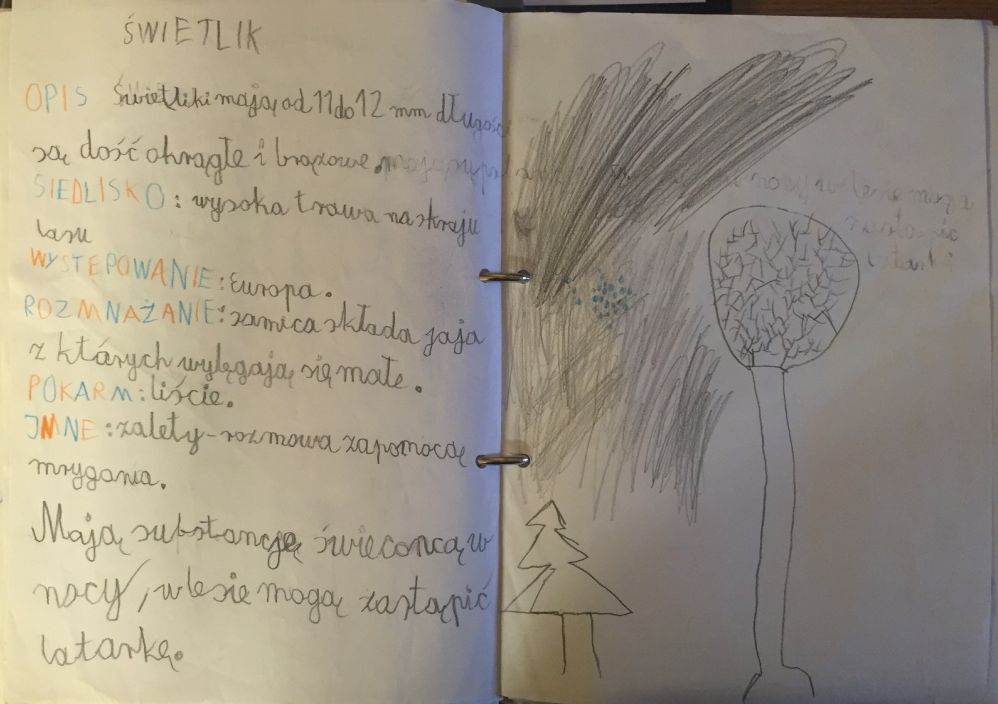 ŚWIETLIK
OPIS Świetliki mają od 11 do 12 mm długości
są dość okrągłe i brązowe.
SIEDLISKO: wysoka trawa na skraju
lasu
WYSTĘPOWANIE: Europa.
ROZMNAŻANIE: samica składa jaja
z których wylęgają się małe.
POKARM: liście.
INNE: zalety-rozmowa zapomocą
mrygania.
Mają substancję świeconcą w
nocy/, w lesie mogą zastąpić
latarkę.